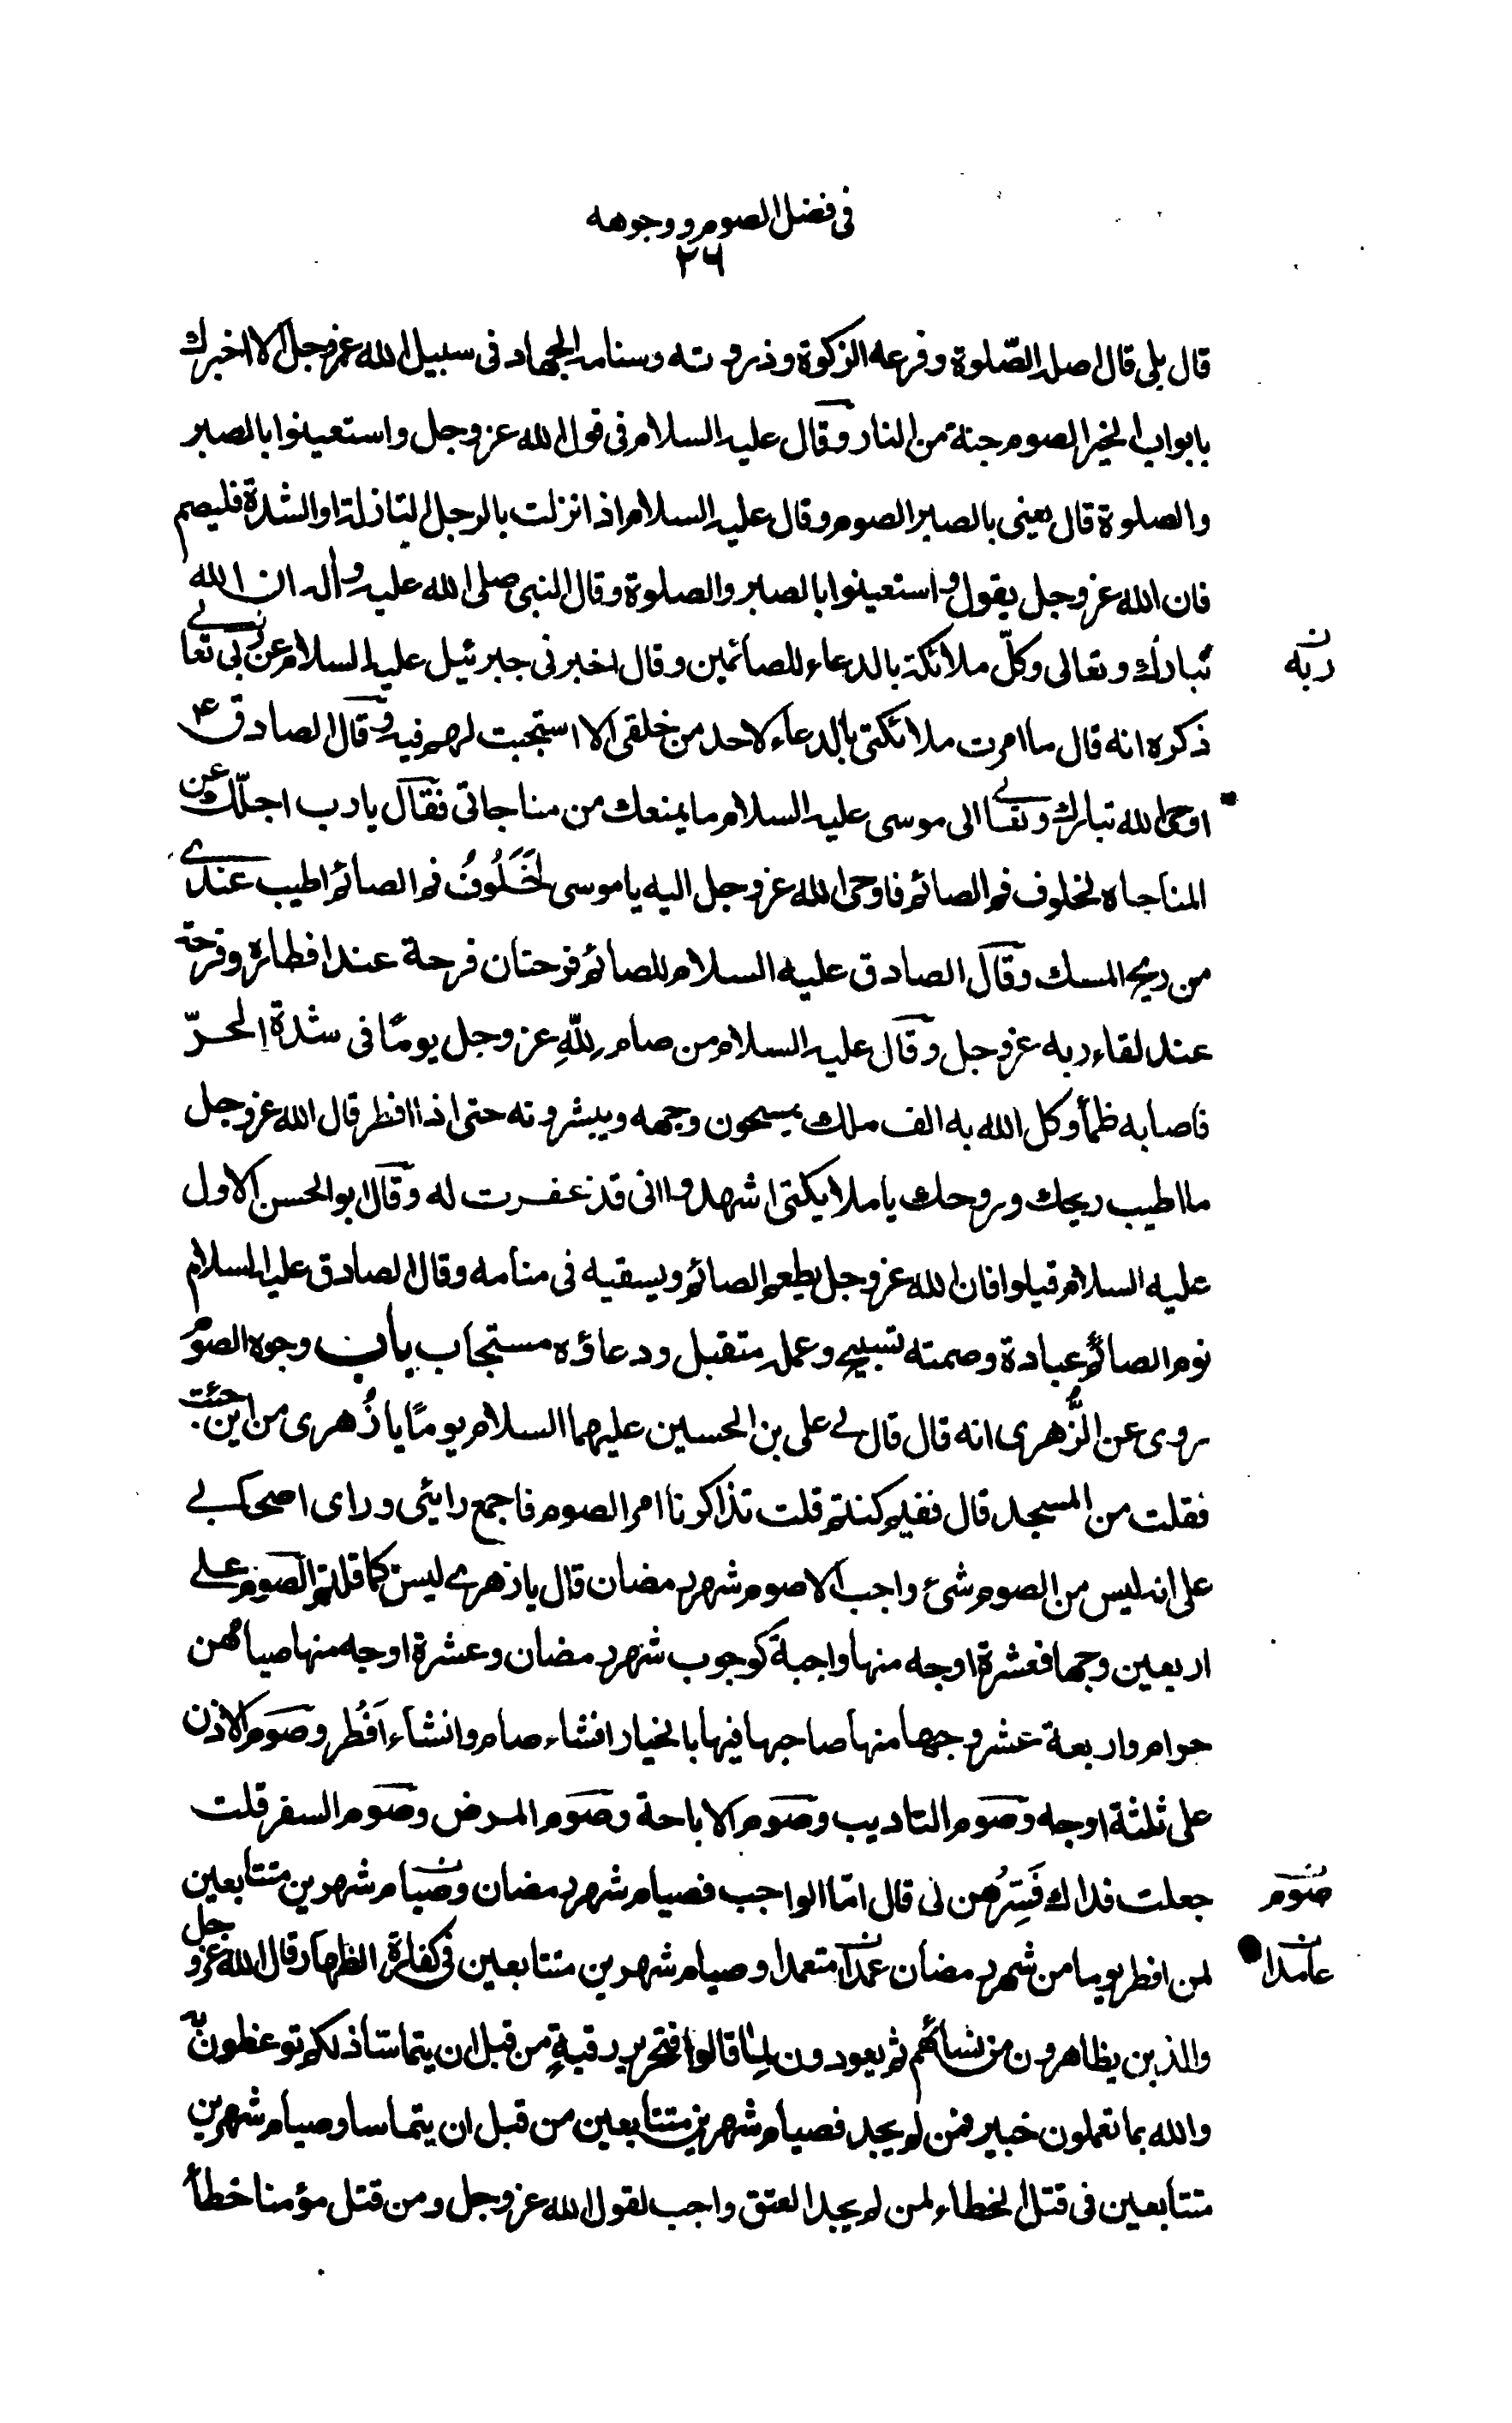 في فضل الصوم ووجوهه
٢٦
قال بلى قال اصله الصّلوة وفرعه الزكوة وذروته وسنامه الجهاد فى سبيل الله عز وجل الا اخبرك
بابواب الخير الصوم جنة من النار وقال عليه السلام فى قول الله عز وجل واستعينوا بالصبر
والصلوة قال يعنى بالصبر الصوم وقال عليه السلام اذا نزلت بالرجل النازلة او الشدة فليصم
فان الله عز وجل يقول واستعينوا بالصبر والصلوة وقال النبى صلى الله عليه وآله ان الله
تبارك وتعالى وكلّ ملائكة بالدعاء للصائمين وقال اخبرنى جبرئيل عليه السلام عن ربى تعالى
ربه
ذكره انه قال ما امرت ملائكتى بالدعاء لاحد من خلقى الا استجبت لهم فيه وقال الصادق ع
اوحى الله تبارك وتعالى الى موسى عليه السلام ما يمنعك من مناجاتى فقال يا رب اجلّك عن
المناجاه لخلوف فم الصائم فاوحى الله عز وجل اليه يا موسى لَخَلُوفُ فم الصائم اطيب عندى
من ريح المسك وقال الصادق عليه السلام للصائم فرحتان فرحة عند افطاره وفرحة
عند لقاء ربه عز وجل وقال عليه السلام من صام لِلّهِ عز وجل يومًا فى شدة الحرّ
فاصابه ظمأ وكل الله به الف ملك يمسحون وجهه ويبشرونه حتى اذا افطر قال الله عز وجل
ما اطيب ريحك وروحك يا ملايكتى اشهدوا انى قد غفرت له وقال ابو الحسن الاول
عليه السلام قيلوا فان الله عز وجل يطعم الصائم ويسقيه فى منامه وقال الصادق عليه السلام
نوم الصائم عبادة وصمته تسبيح وعمله متقبل ودعاؤه مستجاب باب وجوه الصوم
روى عن الزُّهرى انه قال قال لى على بن الحسين عليهما السلام يومًا يا زُهرى من اين جئت
فقلت من المسجد قال ففيم كنتم قلت تذاكرنا امر الصوم فاجمع رايئى وراى اصحابى
على انه ليس من الصوم شئ واجب الا صوم شهر رمضان قال يا زهرى ليس كما قلتم الصوم على
اربعين وجها فعشرة اوجه منها واجبة كوجوب شهر رمضان وعشرة اوجه منها صيامهن
حرام واربعة عشر وجها منها صاحبها فيها بالخيار انشاء صام وانشاء اَفُطر وصوم الاذن
على ثلثة اوجه وصوم التاديب وصوم الاباحة وصوم المرض وصوم السفر قلت
جعلت فداك فَسِّرْهن لى قال امّا الواجب فصيام شهر رمضان وصيام شهرين متتابعين
صوم
لمن افطر يوما من شهر رمضان عمدا متعمدا وصيام شهرين متتابعين فى كفارة الظهار قال الله عز وجل
عامدا
والذين يظاهرون من نسائهم ثم يعودون لِمَا قالوا فتحرير رقبةٍ من قبل ان يتماسّا ذلكم توعظون به
والله بما تعملون خبير فمن لم يجد فصيام شهرين متتابعين من قبل ان يتماسا وصيام شهرين
متتابعين فى قتل الخطاء لمن لم يجد العتق واجب لقول الله عز وجل ومن قتل مؤمنا خطأ